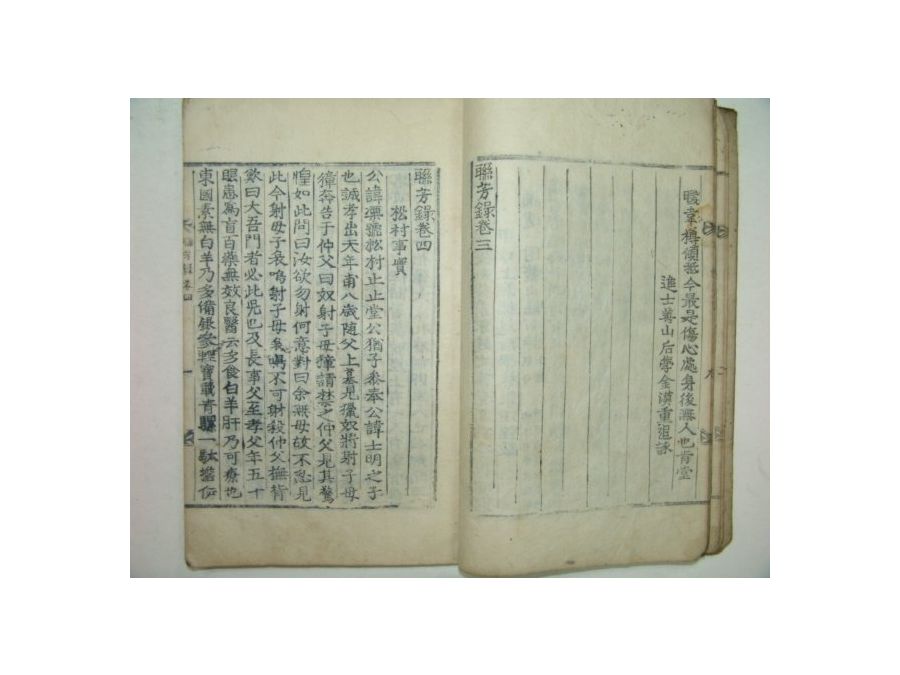 最是傷心處身後無人也肯堂
進士善山后學金漢重謹詠
聯芳錄卷三
聯芳錄卷四
松村事實
公諱㮚號松村止止堂公猶子叅奉公諱士明之子
也誠孝出天年甫八歲随父上墓見獵奴將射子母
獐奔告于仲父曰奴射子母獐請禁之仲父見其驚
惶如此間曰汝欲勿射何意對曰余無母故不忍見
此今射母子哀鳴射子母哀鳴不可射殺仲父撫背
歎曰大吾門者必此兒也及長事父至孝父年五十
眼患為盲百藥無效良醫云多食白羊肝乃可療也
東國素無白羊乃多備銀參
寶載青騾一駄